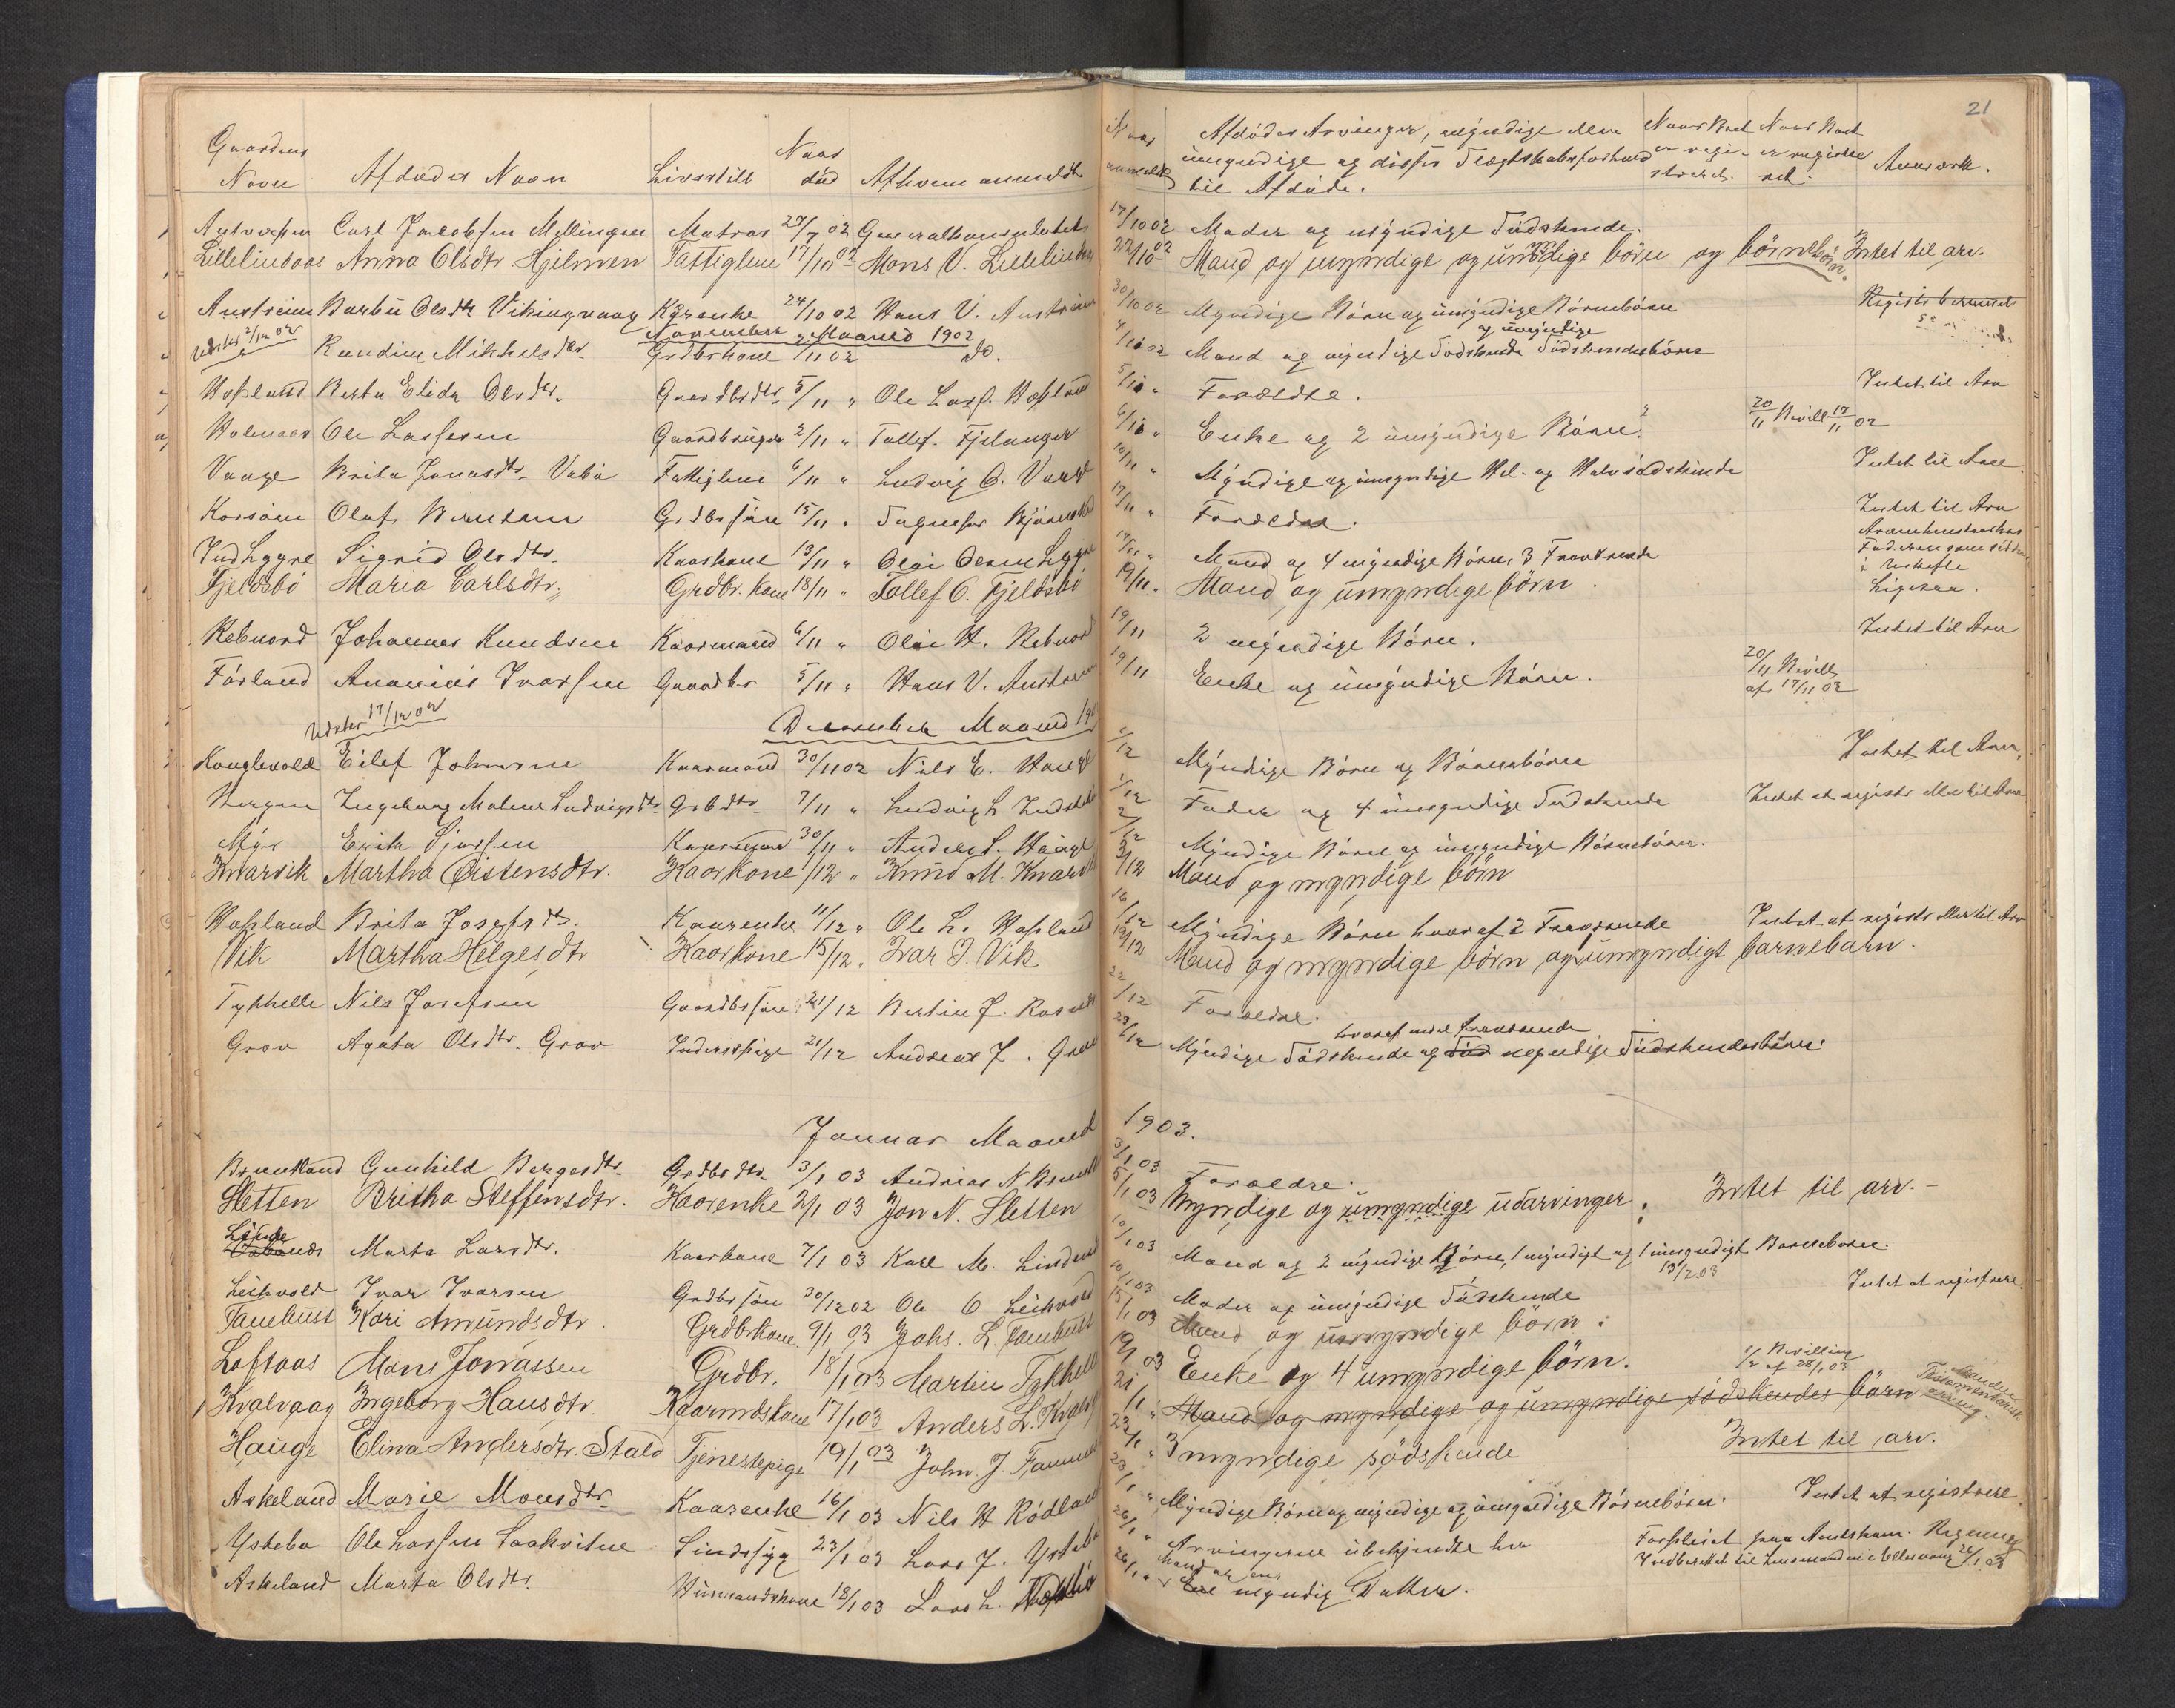 21
Gaardens Navn Afdødes Navn Livsstill Naar død Af hvem anmeldt Naar anmeldt Afdødes Arvinger, myndige eller umyndige og disses Slægtskabsforhold til Afdøde. Naar Boet er registreret. Naar Boet er Anmærk.
Carl Jacobsen Mellingen Matros 27/7 02 Generalkonsulatet 17/10 02 Moder og myndige Södskende.
Lillelindaas Anna Olsdtr. Hjelmen Fattiglem 17/10 02 Mons V. Lillelindaas 22/10 02 Mand og myndige og umyndige börn og börnebörn. Intet til arv.
Austreim Barbu Olsdtr Vikingvaag Kaarenke 24/10 02 Hans V. Austreim 30/10 02 Myndige Börn og umyndige Börnebörn
November Maaned 1902
Randine Mikkelsdtr. Grdbrkone /11 02 do. 4/11 02 Mand og myndige Södskende og umyndige Södskendebörn
Hopland Berta Elida Olsdtr. Gaardbrdtr. 5/11 " Ole Lars. Hopland 5/11 " Forældre. Intet til Arv
Holmaas Ole Lassesen Gaardbruger 2/11 " Tollef. Fjelanger 6/11 " Enke og 2 umyndige Börn. 20/11 Bevill 17/11 02
Vaage Brita Jonasdtr. Vabö Fattiglem 6/11 " Ludvig O. Vaage 10/11 " Myndige og umyndige Hel- og Halvsödskende Intet til Arv.
Korsöen Olaf Berntsen Grdbrsön 15/11 " 17/11 " Forældre. Intet til Arv
IndLygre Sigrid Olsdtr. Kaarkone 13/11 " Olai Olsen Lygre 17/11 " Mand og 4 myndige Börn, 3 Fraværende
Fjeldsbö Maria Carlsdtr. Grdbr. kone 18/11 " Tollef O. Fjeldsbö 19/11 " Mand og umyndige börn. Ligesaa.
Rebnord Johannes Knudsen Kaarmand 6/11 " Olai H. Rebnord 19/11 2 myndige Börn. Intet til Arv
Förland Ananias Ivarsen Gaardbr 5/11 " Hans V. Austreim 19/11 Enke og umyndige Börn. 20/11 Bevill af 17/11 02
Udskr 17/12 02
December Maaned
Konglevold Eilef Johnsen Kaarmand 30/11 02 Nils E. Hauge 1/12 Myndige Börn og Börnebörn Intet til Arv.
Bergen Ingeborg Malene Ludvigsdtr. Grbdtr. 7/11 " Ludvig L. 1/12 Fader og 4 umyndige Södskende Intet at registr eller til Arv
Myr Erik Sjursen Kaarmand 30/11 " Anders S. Hauge 2/12 Myndige Börn og umyndige Börnebörn.
Kvarvik Martha Öistensdtr. Kaarkone 1/12 " Knud M. Kvarvik 3/12 Mand og myndige börn
Hopland Brita Josefsdtr. Kaarenke 11/12 " Ole L. Hopland 16/12 Myndige Börn hvoraf 2 Fraværende Intet at registr eller til Arv
Vik Martha Helgesdtr Kaarkone 15/12 . Ivar J. Vik 19/12 Mand og myndige börn og umyndigt barnebarn.
Tykhelle Nils Josefsen Gaardbrsön 21/12 Bertin J. 22/12 Forældre.
Grov Agata Olsdtr. Grov Inderstpige 21/12 Andreas J. Grov 23/12 Myndige Södskende hvoraf endel fraværende og myndige Södskendebörn.
Januar Maaned 1903.
Bruntland Gunhild Bergesdtr. Grdbrdtr. 3/1 03 Andreas N. 3/1 03 Forældre.
Sletten Britha Steffensdtr. Kaarenke 2/1 03 Jon N. Sletten 5/1 03 Myndige og umyndige udarvinger. Intet til arv. –
Linde Marta Larsdtr. Kaarkone 7/1 03 Karl M. 10/1 03 Mand og 2 myndige Börn, 1 myndigt og 1 umyndigt Barnebarn.
Leikvold Ivar Ivarsen Grdbrsön 30/12 02 Ole O Leikvold 10/1 03 Moder og umyndige Södskende 13/2.03 Intet at registrere.
Tauebust Kari Amundsdtr. Grdbrkone 9/1 03 Johs. L. Tauebust 15/1 03 Mand og umyndige börn.
Loftaas Mons Jonassen Grdbr. 18/1 03 Martin Tykhelle 19/1 03 Enke og 4 umyndige börn. Bevilling af 28/1 03
Kvalvaag Ingeborg Hansdtr. Kaarmdskone 17/1 03 Anders L. Kvalvaag 21/1 " Mand og myndige og umyndige södskendes börn Manden Testamentarisk arving.
Hauge Elina Andersdtr. Stald Tjenestepige 19/1 03 John. J. 23/1 " 3 myndige södskende Intet til arv.
Askeland Marie Monsdtr. Kaarenke 16/1 03 Nils H Rödland 23/1 " Myndige Börn og myndige og umyndige Börnebörn. Intet at registrere.
Ystebö Ole Larsen Sindssyg 23/1 03 Lars J. Ystebö 26/1 " Arvingerne ubekjendte her Forpleiet paa Amtskom. Regning
Indberettet til Lensmanden i Ullensvang 26/1 03
Askeland Marta Olsdtr. Husmandskone 18/1 03 Lars L. 26/1 " Mand og en myndig Datter.